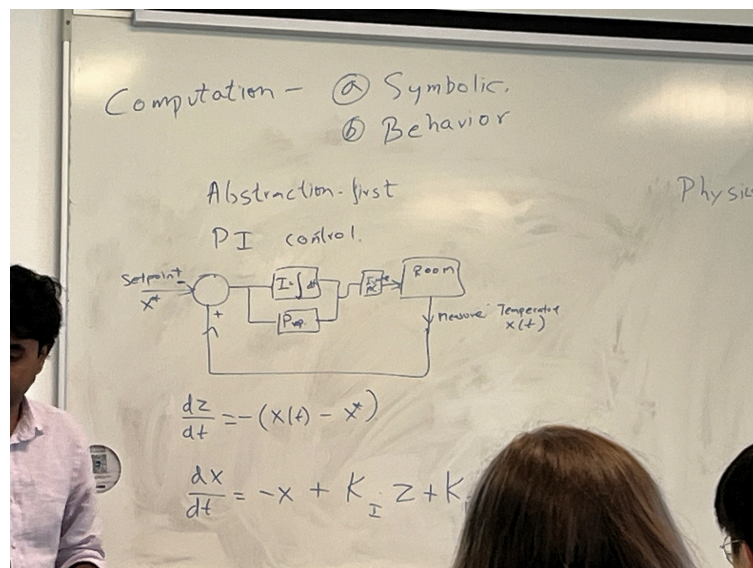 Computation - ⓐ Symbolic.
ⓑ Behavior
Abstraction-first
Physic
PI control.
Setpoint
x*
-
+
I = ∫ dt
Prop.
Room
Measure Temperature
x(t)
dz/dt = -(x(t) - x*)
dx/dt = -x + K_I z + K